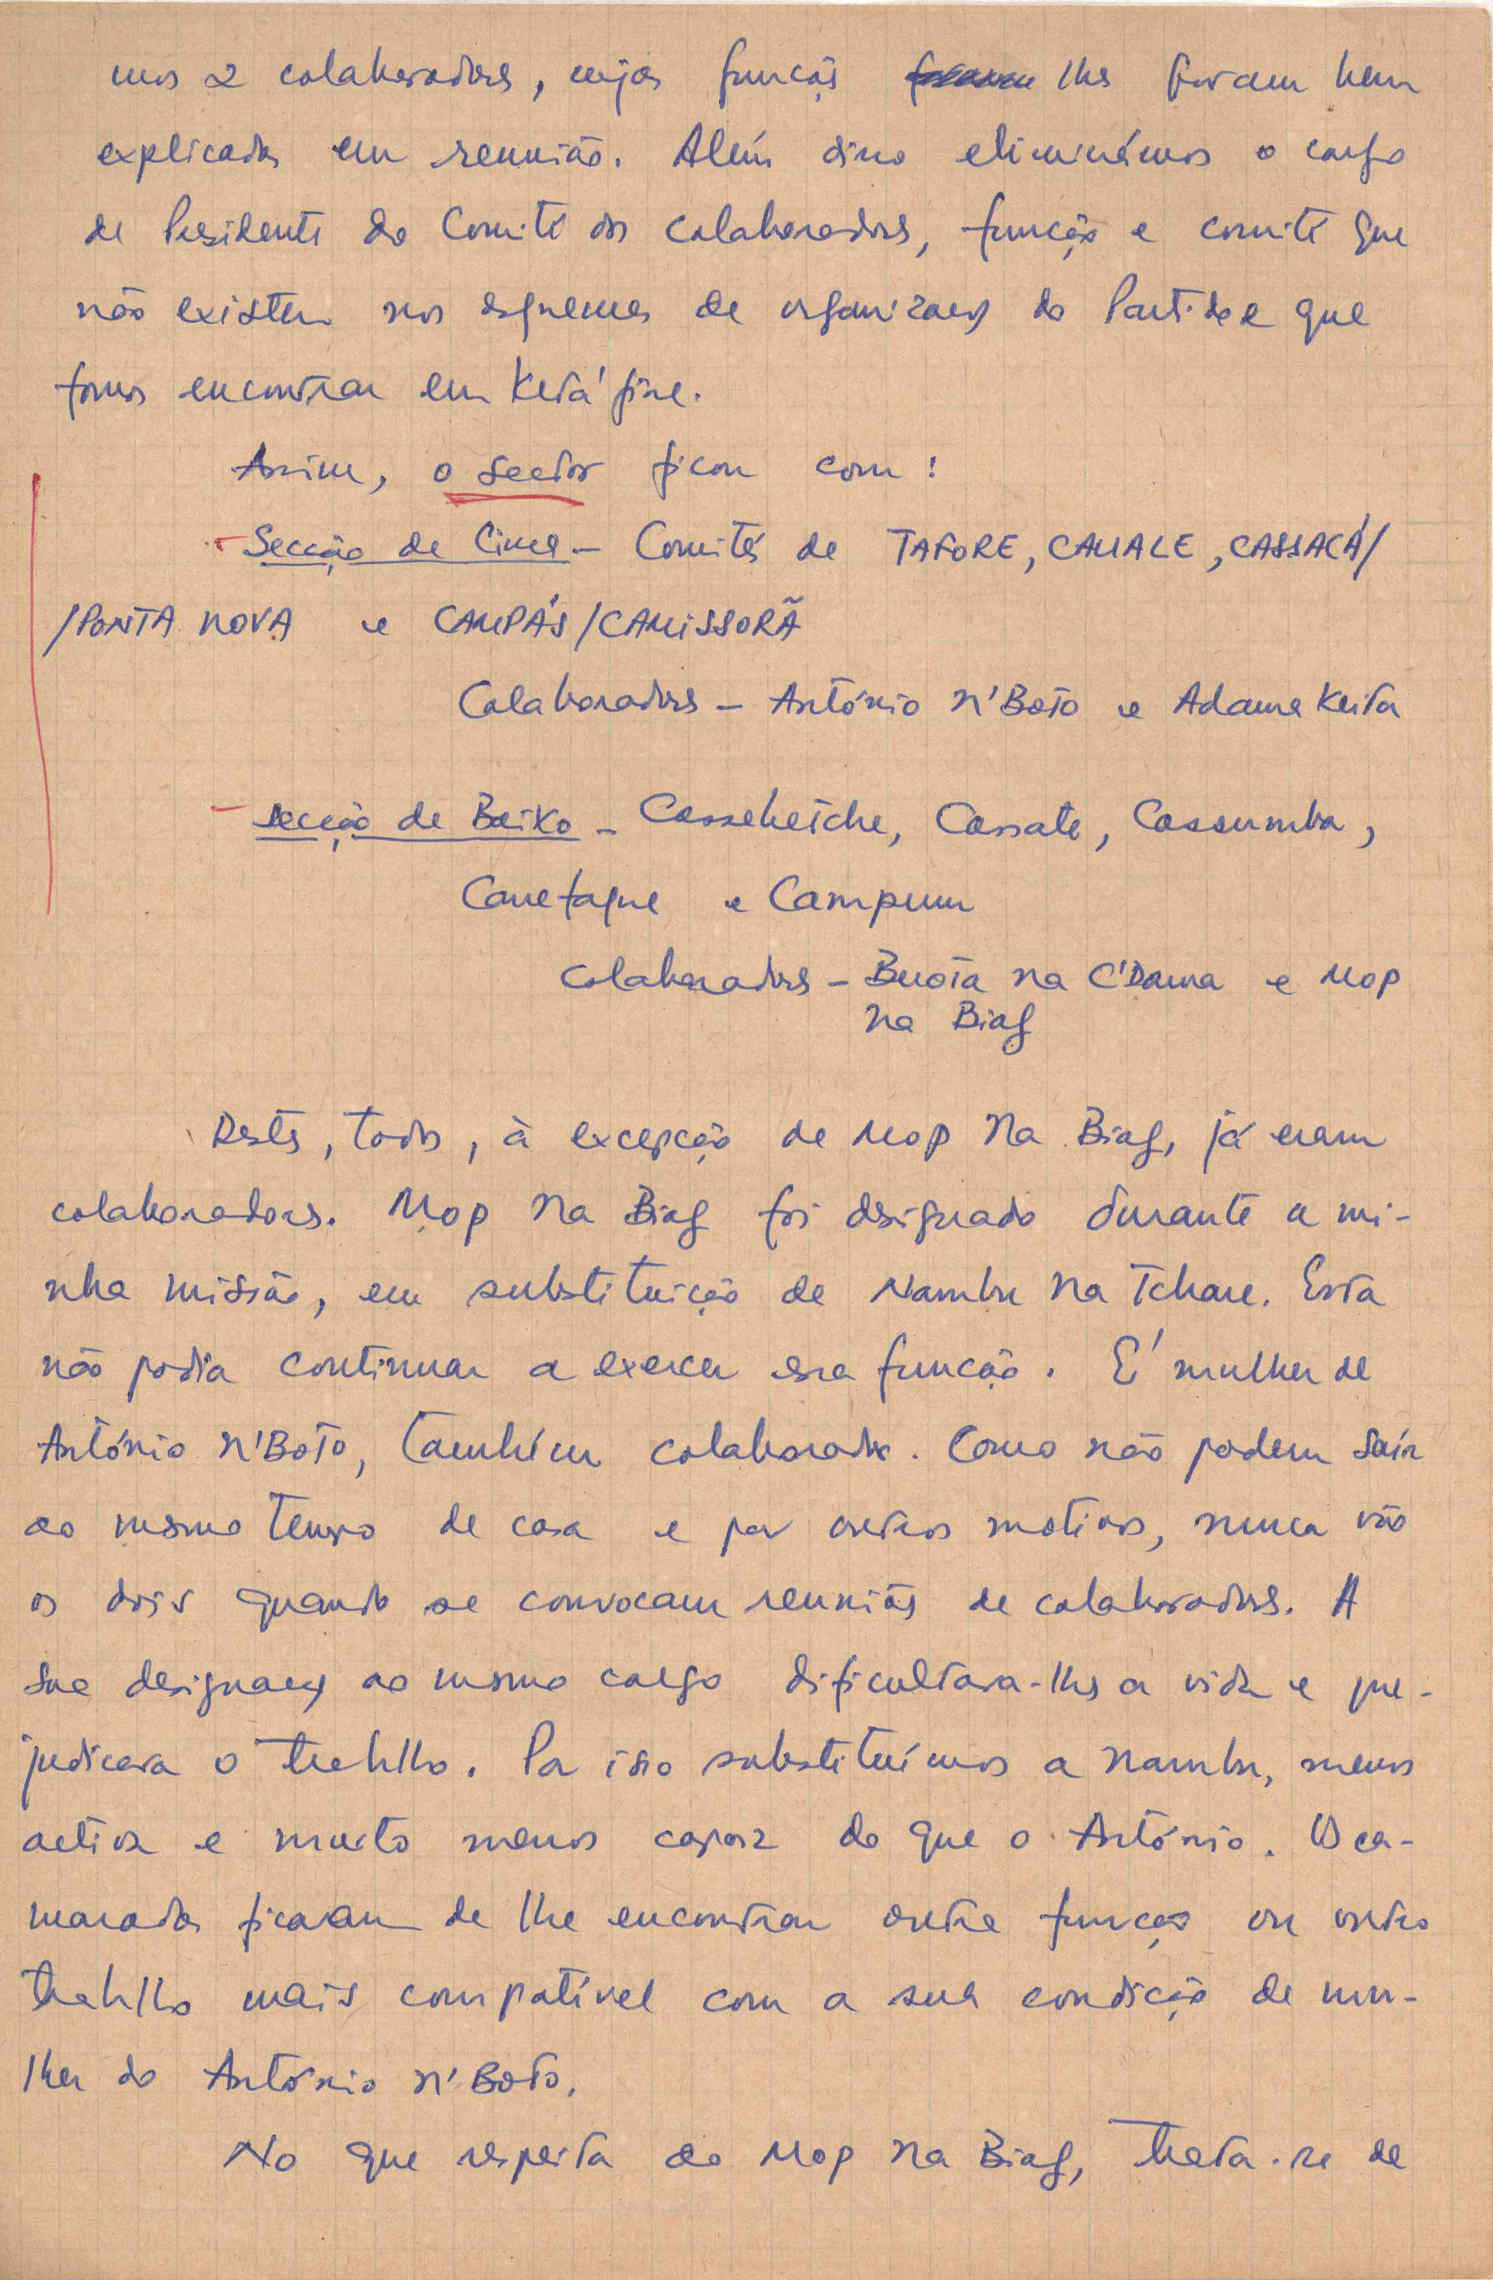 mos 2 colaboradores, cujas funções lhes foram bem
explicadas em reunião. Além disso eliminámos o cargo
de Presidente do Comité dos colaboradores, função e comité que
não existem nos esquemas de organização do Partido e que
fomos encontrar em Kitáfine.
Assim, o sector ficou com:
- Secção de Cima - Comités de TAFORE, CAUALE, CASSACÁ/
/PONTA NOVA e CAMPÁS/CAMISSORÃ
Colaboradores - António N'Boto e Adama Keita
- Secção de Baixo - Cassebetche, Cassate, Cassumba,
Canefaque e Campeum
Colaboradores - Buota na C'Dama e Mop
na Biag
Destes, todos, à excepção de Mop Na Biag, já eram
colaboradores. Mop Na Biag foi designado durante a mi-
nha missão, em substituição de Nambu Na Tchaue. Esta
não podia continuar a exercer essa função. É mulher de
António N'Boto, também colaborador. Como não podem sair
ao mesmo tempo de casa e por outros motivos, nunca vão
os dois quando se convocam reuniões de colaboradores. A
sua designação ao mesmo cargo dificultava-lhes a vida e pre-
judicava o trabalho. Por isso substituímos a Nambu, menos
activa e muito menos capaz do que o António. Os ca-
maradas ficaram de lhe encontrar outra função ou outro
trabalho mais compatível com a sua condição de mu-
lher do António N'Boto.
No que respeita ao Mop Na Biag, trata-se de